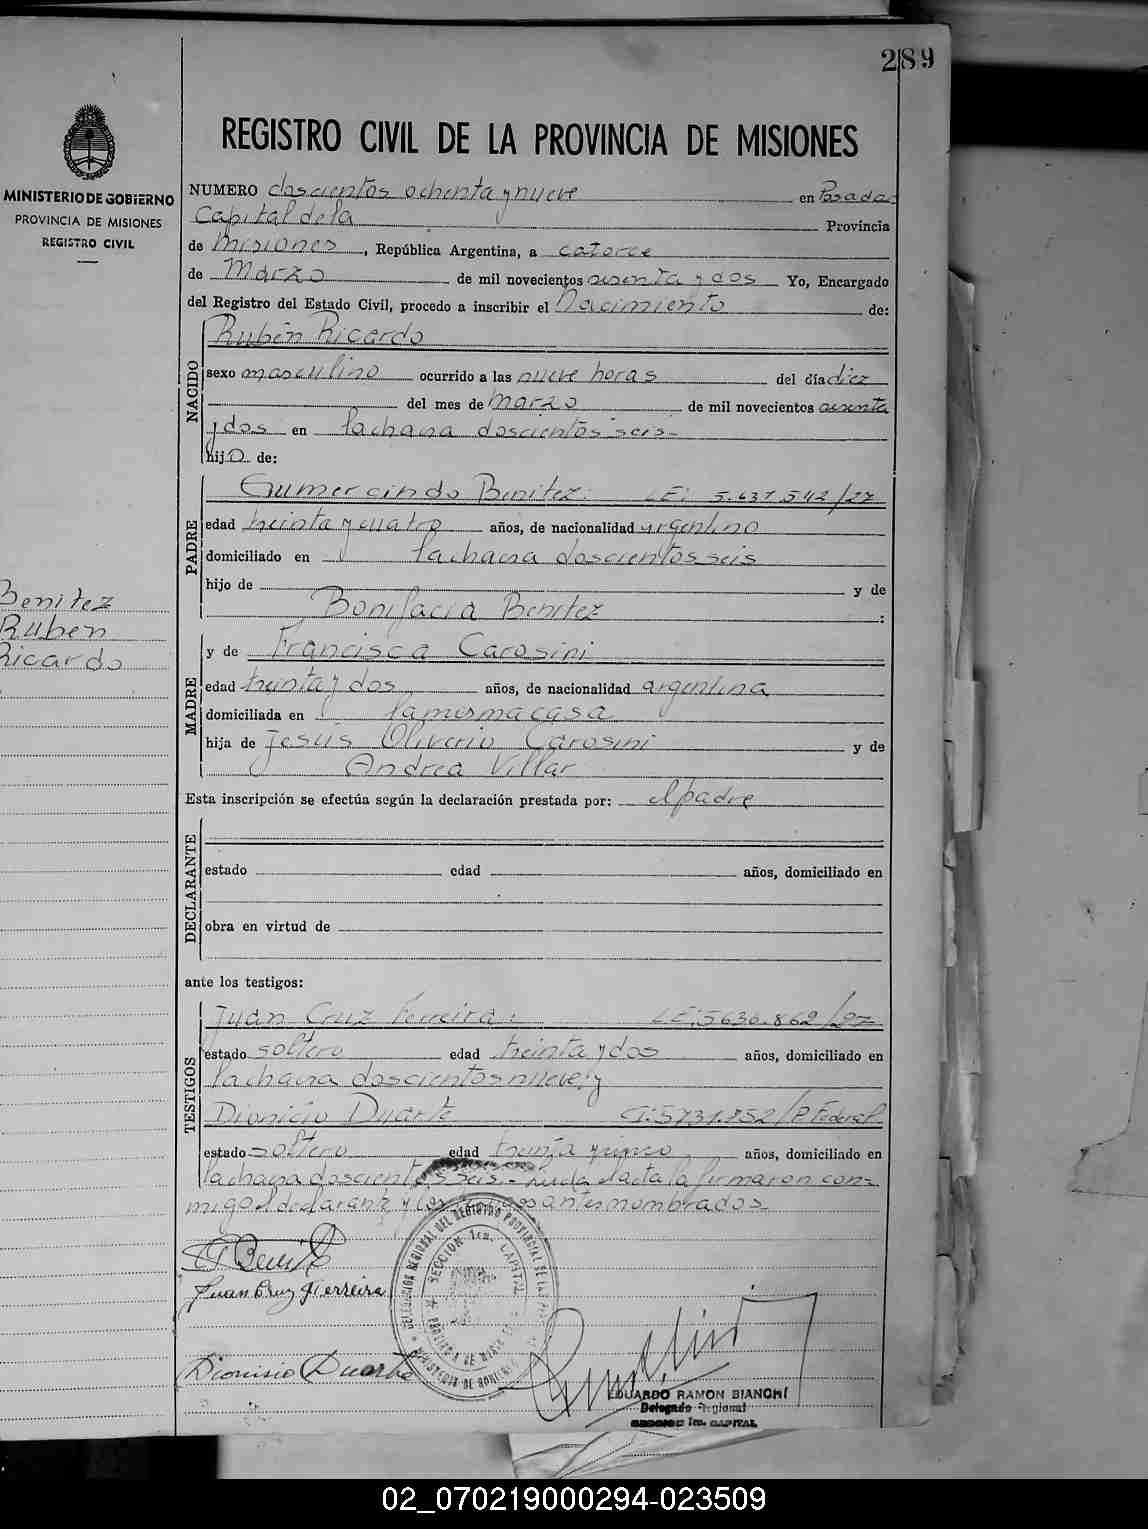 289
REGISTRO CIVIL DE LA PROVINCIA DE MISIONES
MINISTERIO DE GOBIERNO
PROVINCIA DE MISIONES
REGISTRO CIVIL
NUMERO doscientos ochenta y nueve en Posadas
Capital de la Provincia
de Misiones, República Argentina, a catorce
de Marzo de mil novecientos sesenta y dos Yo, Encargado
del Registro del Estado Civil, procedo a inscribir el Nacimiento de:
NACIDO
Rubén Ricardo
sexo masculino ocurrido a las nueve horas del día diez
del mes de Marzo de mil novecientos sesenta
y dos en la chacra doscientos seis-
hijo de:
PADRE
Gumercindo Benitez: LE: 5.637.542/27
edad treinta y cuatro años, de nacionalidad argentino
domiciliado en la chacra doscientos seis
hijo de y de
Bonifacia Benitez :
Benitez
Ruben
Ricardo
MADRE
y de Francisca Carosini
edad treinta y dos años, de nacionalidad argentina
domiciliada en la misma casa
hija de Jesús Oliverio Carosini y de
Andrea Villar
Esta inscripción se efectúa según la declaración prestada por: el padre
DECLARANTE
estado edad años, domiciliado en
obra en virtud de
ante los testigos:
TESTIGOS
Juan Cruz Ferreira: LE: 5630.862/27
estado soltero edad treinta y dos años, domiciliado en
la chacra doscientos nueve; y
Dionicio Duarte CI: 5731.852/P. Federal
estado soltero edad treinta y cinco años, domiciliado en
la chacra doscientos seis.- Leida el acta la firmaron con-
migo el declarante y los testigos antes nombrados-
Juan Cruz Ferreira
Dionisio Duarte
DELEGACION REGIONAL DEL REGISTRO PROVINCIAL DE LAS
SECCION 1ra. CAPITAL
EDUARDO RAMON BIANCHI
Delegado Regional
SECCION 1ra. CAPITAL
02_070219000294-023509